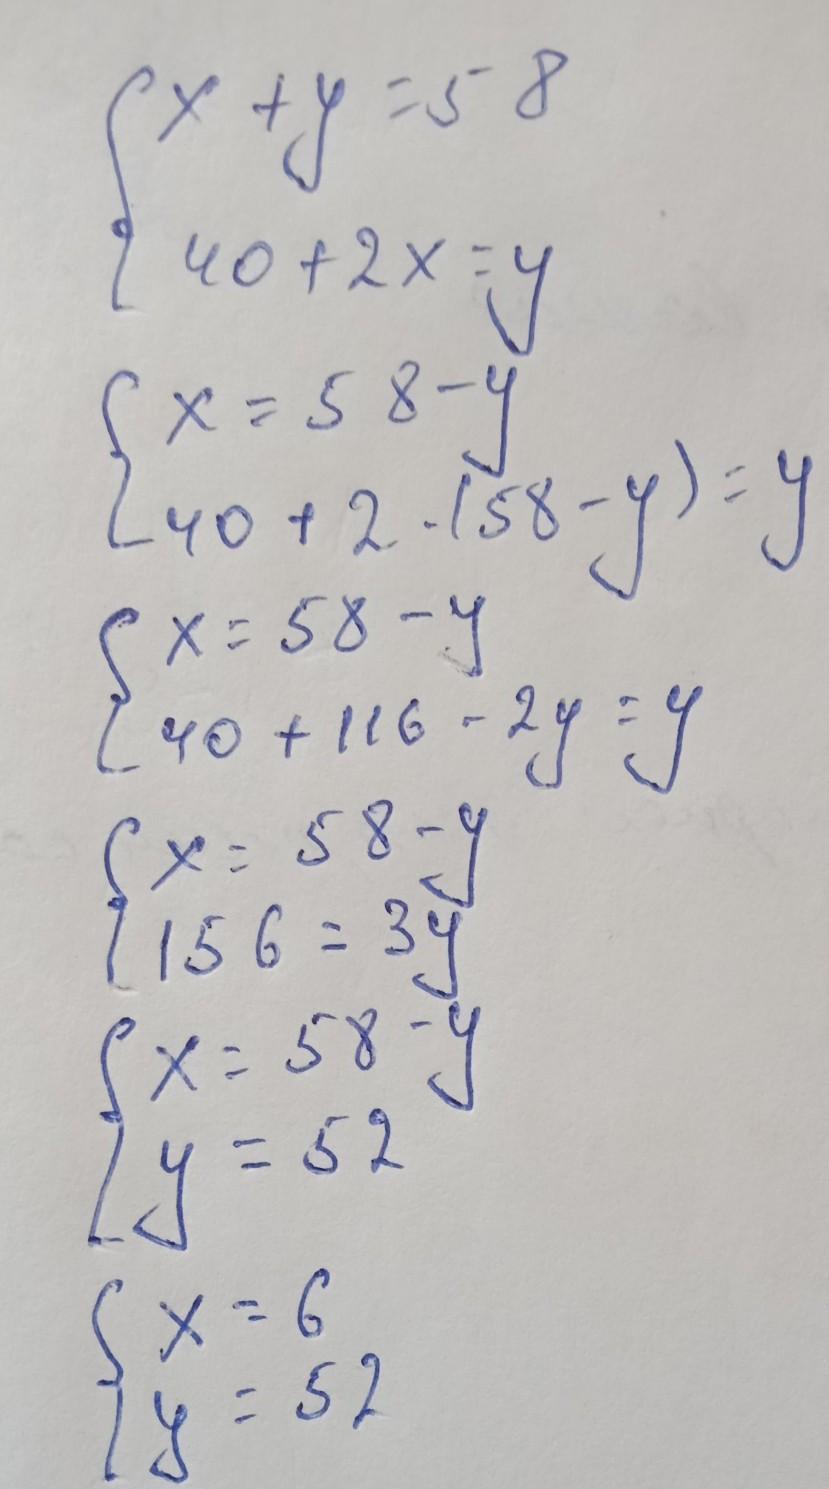 x + y = 58
40 + 2x = y
x = 58 - y
40 + 2 · (58 - y) = y
x = 58 - y
40 + 116 - 2y = y
x = 58 - y
156 = 3y
x = 58 - y
y = 52
x = 6
y = 52